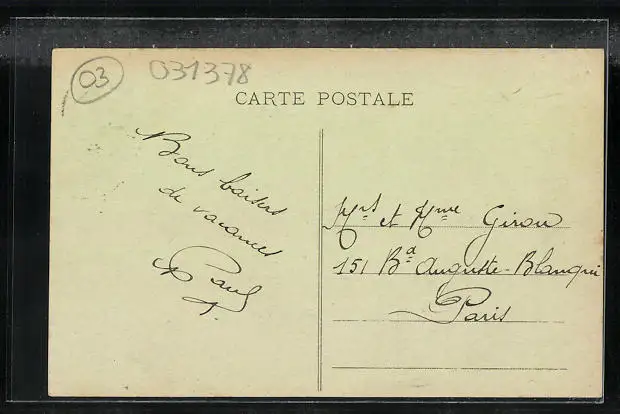 03
031378
CARTE POSTALE
Bons baisers
de vacances
Paul
Mrs et Mme Girou
151 Bd Auguste-Blanqui
Paris